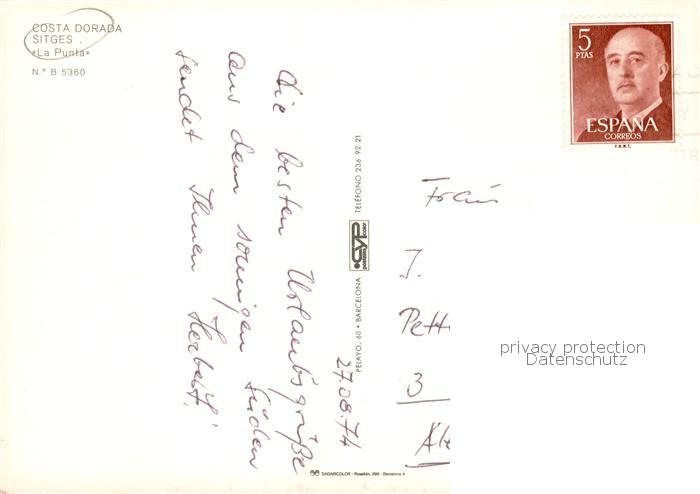 COSTA DORADA
SITGES
«La Punta»
N.° B 5360
Die besten Urlaubsgrüße
aus dem sonnigen Süden
sendet Ihnen Herbert!
27.08.74
PELAYO, 60 • BARCELONA
TELÉFONO 236 92 21
SADAGCOLOR - Rosellón, 290 - Barcelona
5
PTAS
ESPAÑA
CORREOS
F.N.M.T.
J.
Pett
3
privacy protection
Datenschutz